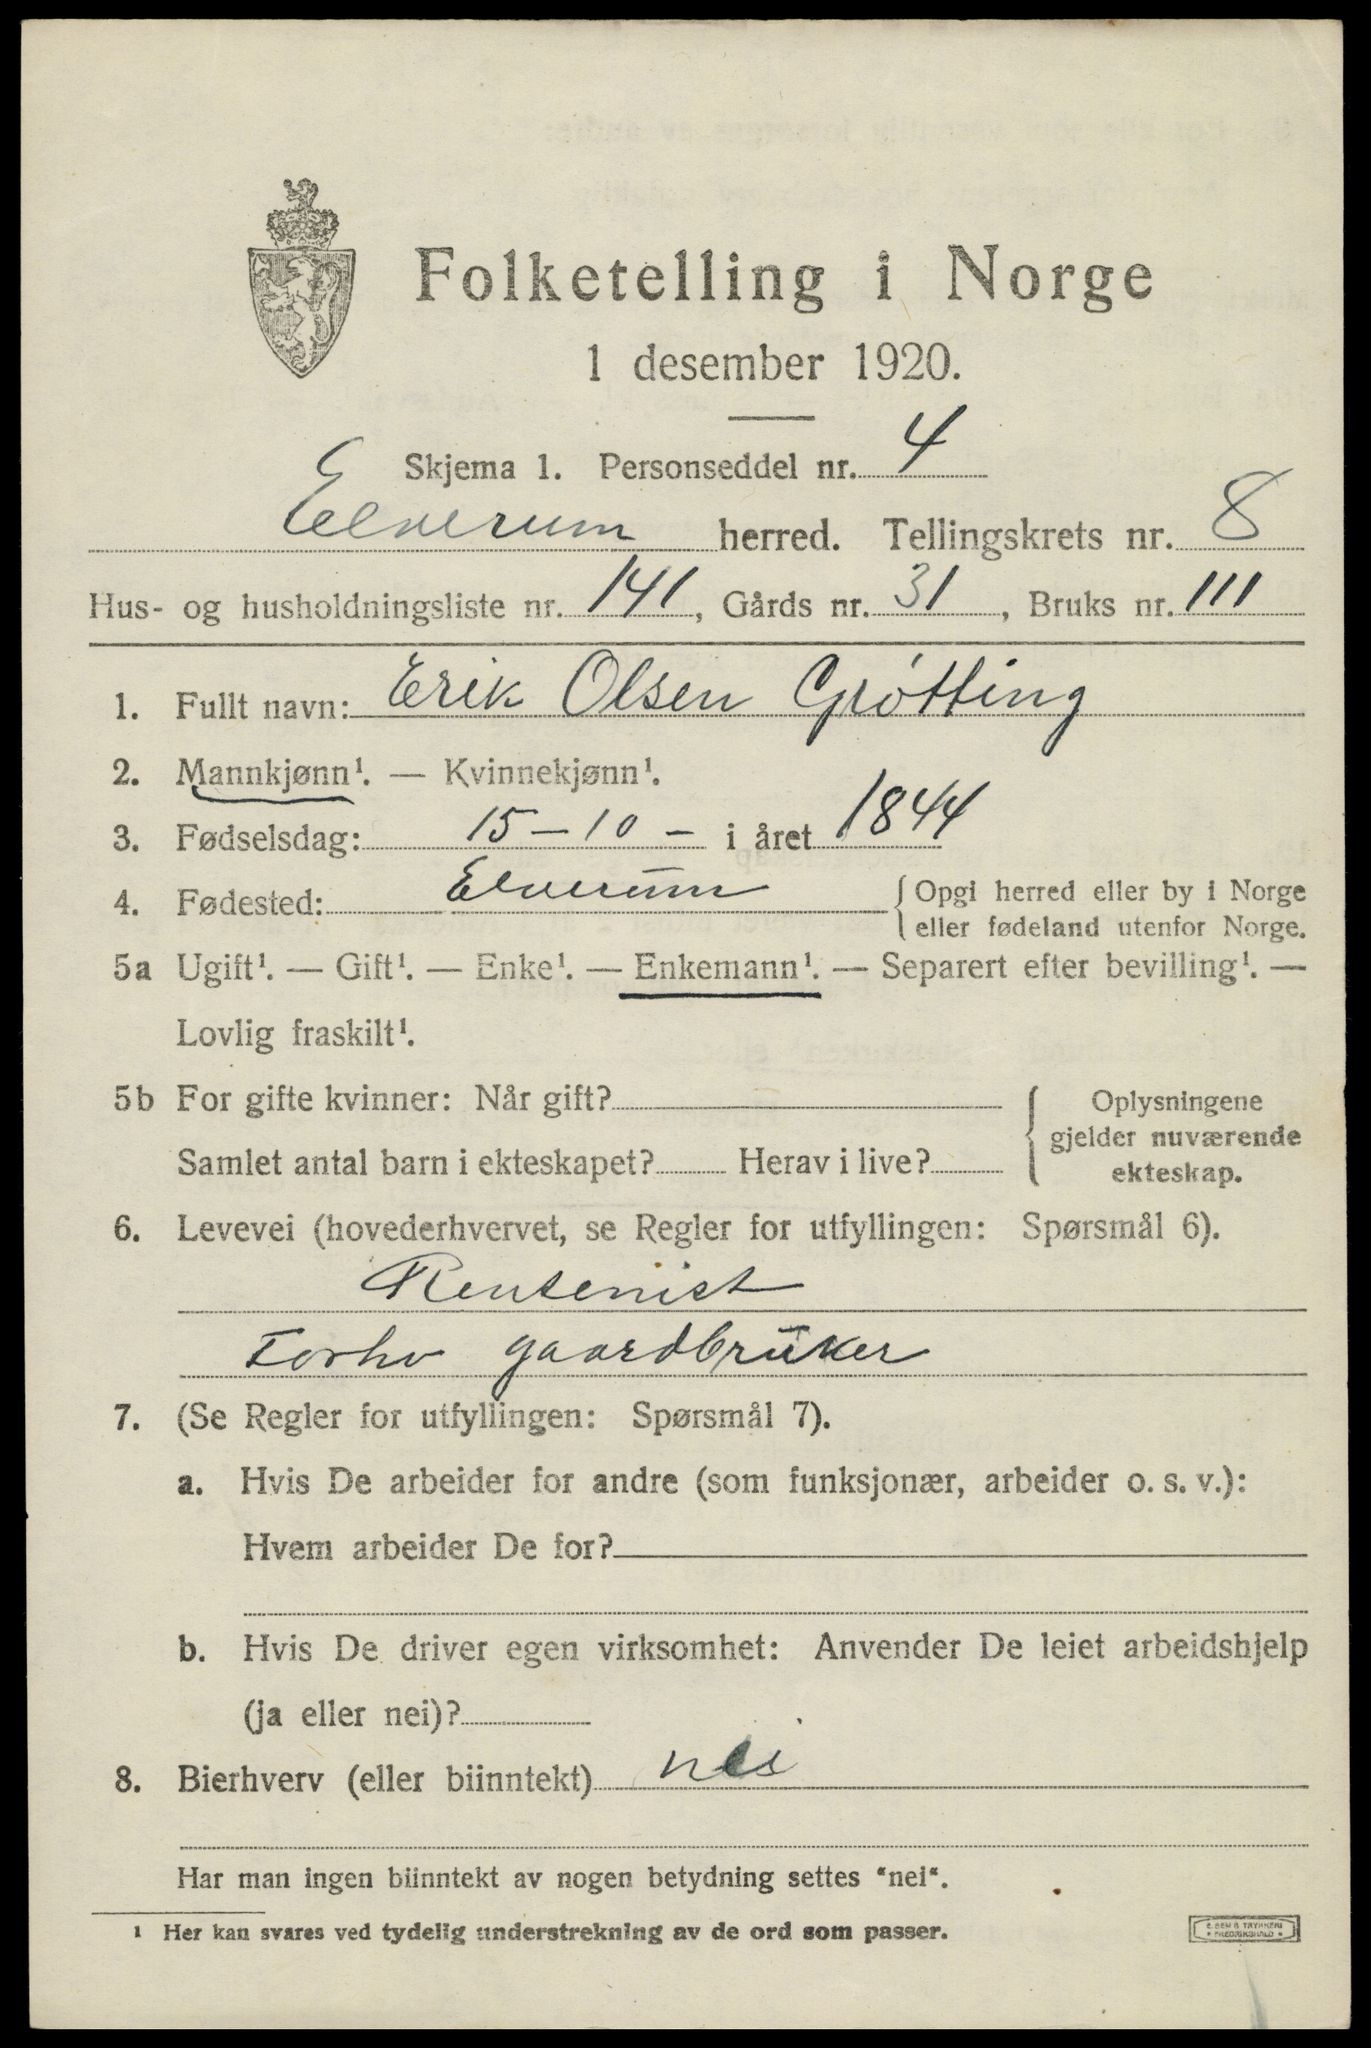 Folketelling i Norge
1 desember 1920.
Skjema 1. Personseddel nr. 4
Elverum herred. Tellingskrets nr. 8
Hus- og husholdningsliste nr. 141, Gårds nr. 31, Bruks nr. 111
1. Fullt navn: Erik Olsen Grøtting
2. Mannkjønn¹. — Kvinnekjønn¹.
3. Fødselsdag: 15 - 10 - i året 1844
4. Fødested: Elverum { Opgi herred eller by i Norge
eller fødeland utenfor Norge.
5a Ugift¹. — Gift¹. — Enke¹. — Enkemann¹. — Separert efter bevilling¹. —
Lovlig fraskilt¹.
5b For gifte kvinner: Når gift? { Oplysningene
gjelder nuværende
Samlet antal barn i ekteskapet? Herav i live? ekteskap.
6. Levevei (hovederhvervet, se Regler for utfyllingen: Spørsmål 6).
Rentenist
Forhv gaardbruker
7. (Se Regler for utfyllingen: Spørsmål 7).
a. Hvis De arbeider for andre (som funksjonær, arbeider o. s. v.):
Hvem arbeider De for?
b. Hvis De driver egen virksomhet: Anvender De leiet arbeidshjelp
(ja eller nei)?
8. Bierhverv (eller biinntekt) nei
Har man ingen biinntekt av nogen betydning settes "nei".
¹ Her kan svares ved tydelig understrekning av de ord som passer.
E. SEM'S TRYKKERI
FREDRIKSHALD